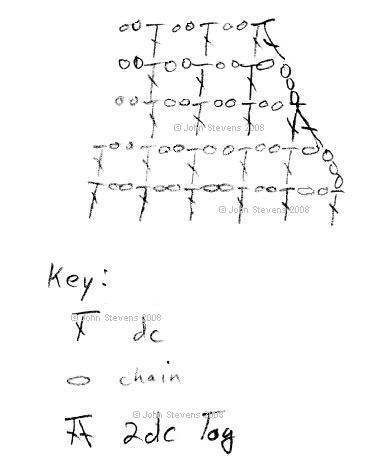 © John Stevens 2008
© John Stevens 2008
Key:
© John Stevens 2008
dc
chain
© John Stevens 2008
2dc Tog